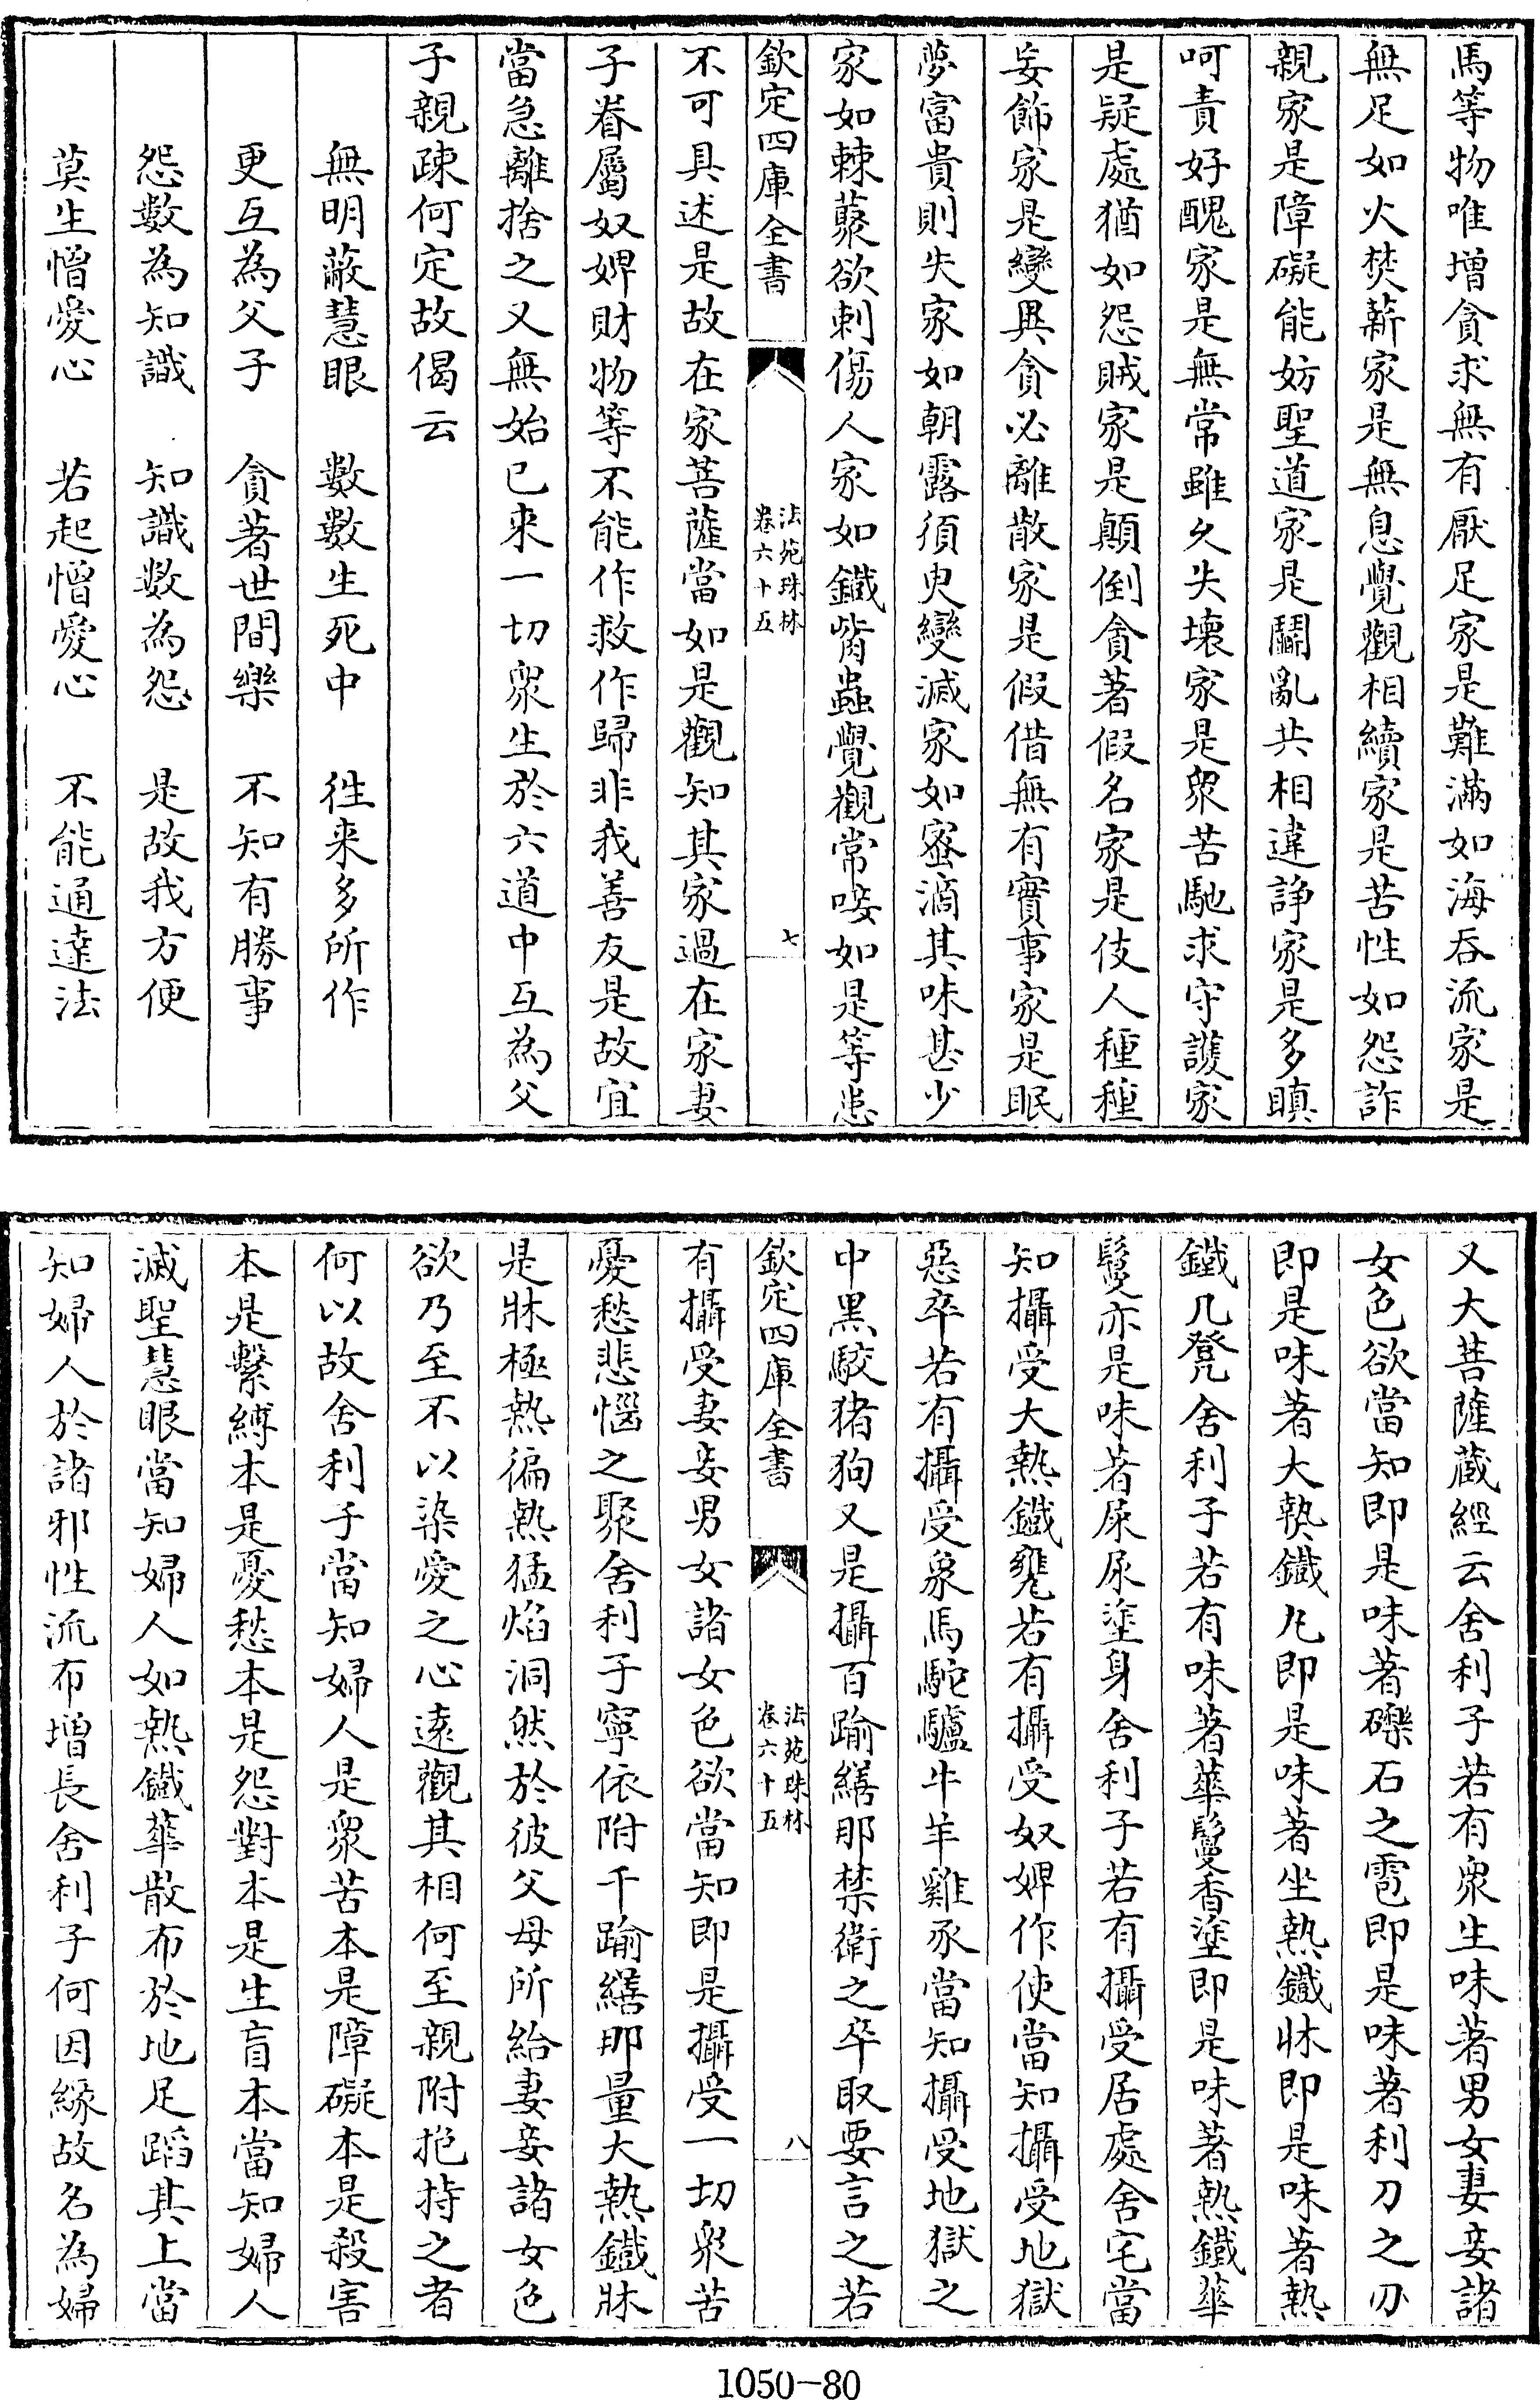 馬等物唯增貪求無有厭足家是難滿如海吞流家是
無足如火焚薪家是無息覺觀相續家是苦性如怨詐
親家是障礙能妨聖道家是鬬亂共相違諍家是多瞋
呵責好醜家是無常雖乆失壞家是衆苦馳求守護家
是疑處猶如怨賊家是顛倒貪著假名家是伎人種種
妄飾家是變異貪必離散家是假借無有實事家是眠
夢富貴則失家如朝露須㬰變滅家如蜜滴其味甚少
家如棘藂欲刺傷人家如鐵觜蟲覺觀常唼如是等患
欽定四庫全書
法苑珠林
卷六十五
七
不可具述是故在家菩薩當如是觀知其家過在家妻
子眷屬奴婢財物等不能作救作歸非我善友是故宜
當急離捨之又無始已來一切衆生於六道中互為父
子親疎何定故偈云
無明蔽慧眼　數數生死中　徃来多所作
更互為父子　貪著世間樂　不知有勝事
怨數為知識　知識數為怨　是故我方便
莫生憎愛心　若起憎愛心　不能通達法
又大菩薩藏經云舍利子若有衆生味著男女妻妾諸
女色欲當知即是味著礫石之雹即是味著利刀之刃
即是味著大熱鐵丸即是味著坐熱鐵牀即是味著熱
鐵几凳舍利子若有味著華鬘香塗即是味著熱鐵華
鬘亦是味著屎尿塗身舍利子若有攝受居處舍宅當
知攝受大熱鐵甕若有攝受奴婢作使當知攝受地獄
惡卒若有攝受象馬駝驢牛羊雞豕當知攝受地獄之
中黑駮猪狗又是攝百踰繕那禁衛之卒取要言之若
欽定四庫全書
法苑珠林
卷六十五
八
有攝受妻妾男女諸女色欲當知即是攝受一切衆苦
憂愁悲惱之聚舍利子寧依附千踰繕那量大熱鐵牀
是牀極熱徧熱猛焰洞然於彼父母所給妻妾諸女色
欲乃至不以染愛之心遠觀其相何至親附抱持之者
何以故舍利子當知婦人是衆苦本是障礙本是殺害
本是繫縛本是憂愁本是怨對本是生盲本當知婦人
滅聖慧眼當知婦人如熱鐵華散布於地足蹈其上當
知婦人於諸邪性流布增長舍利子何因緣故名為婦
1050-80